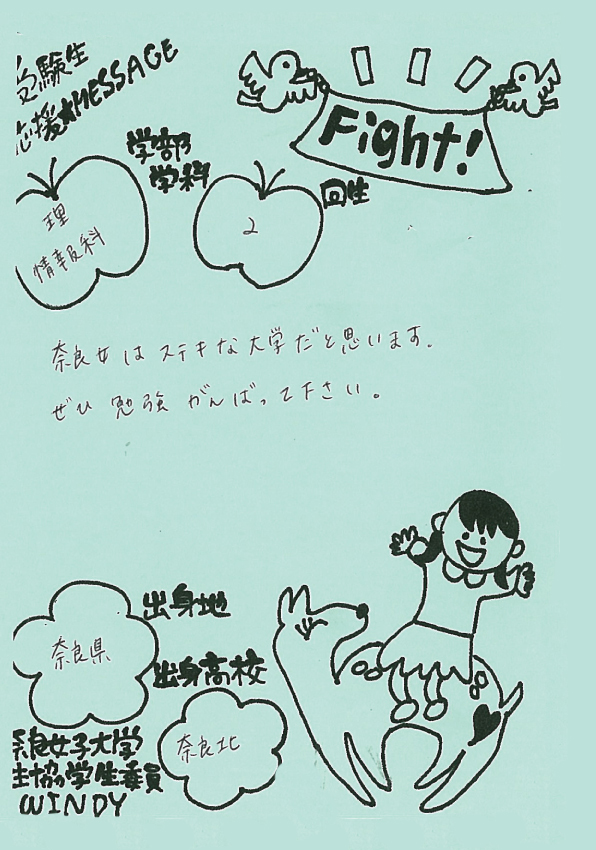 受験生
応援★MESSAGE
Fight!
学部
学科
理
情報科
2
回生
奈良女はステキな大学だと思います。
ぜひ勉強がんばって下さい。
出身地
奈良県
出身高校
奈良北
奈良女子大学
生協の学生委員
WINDY